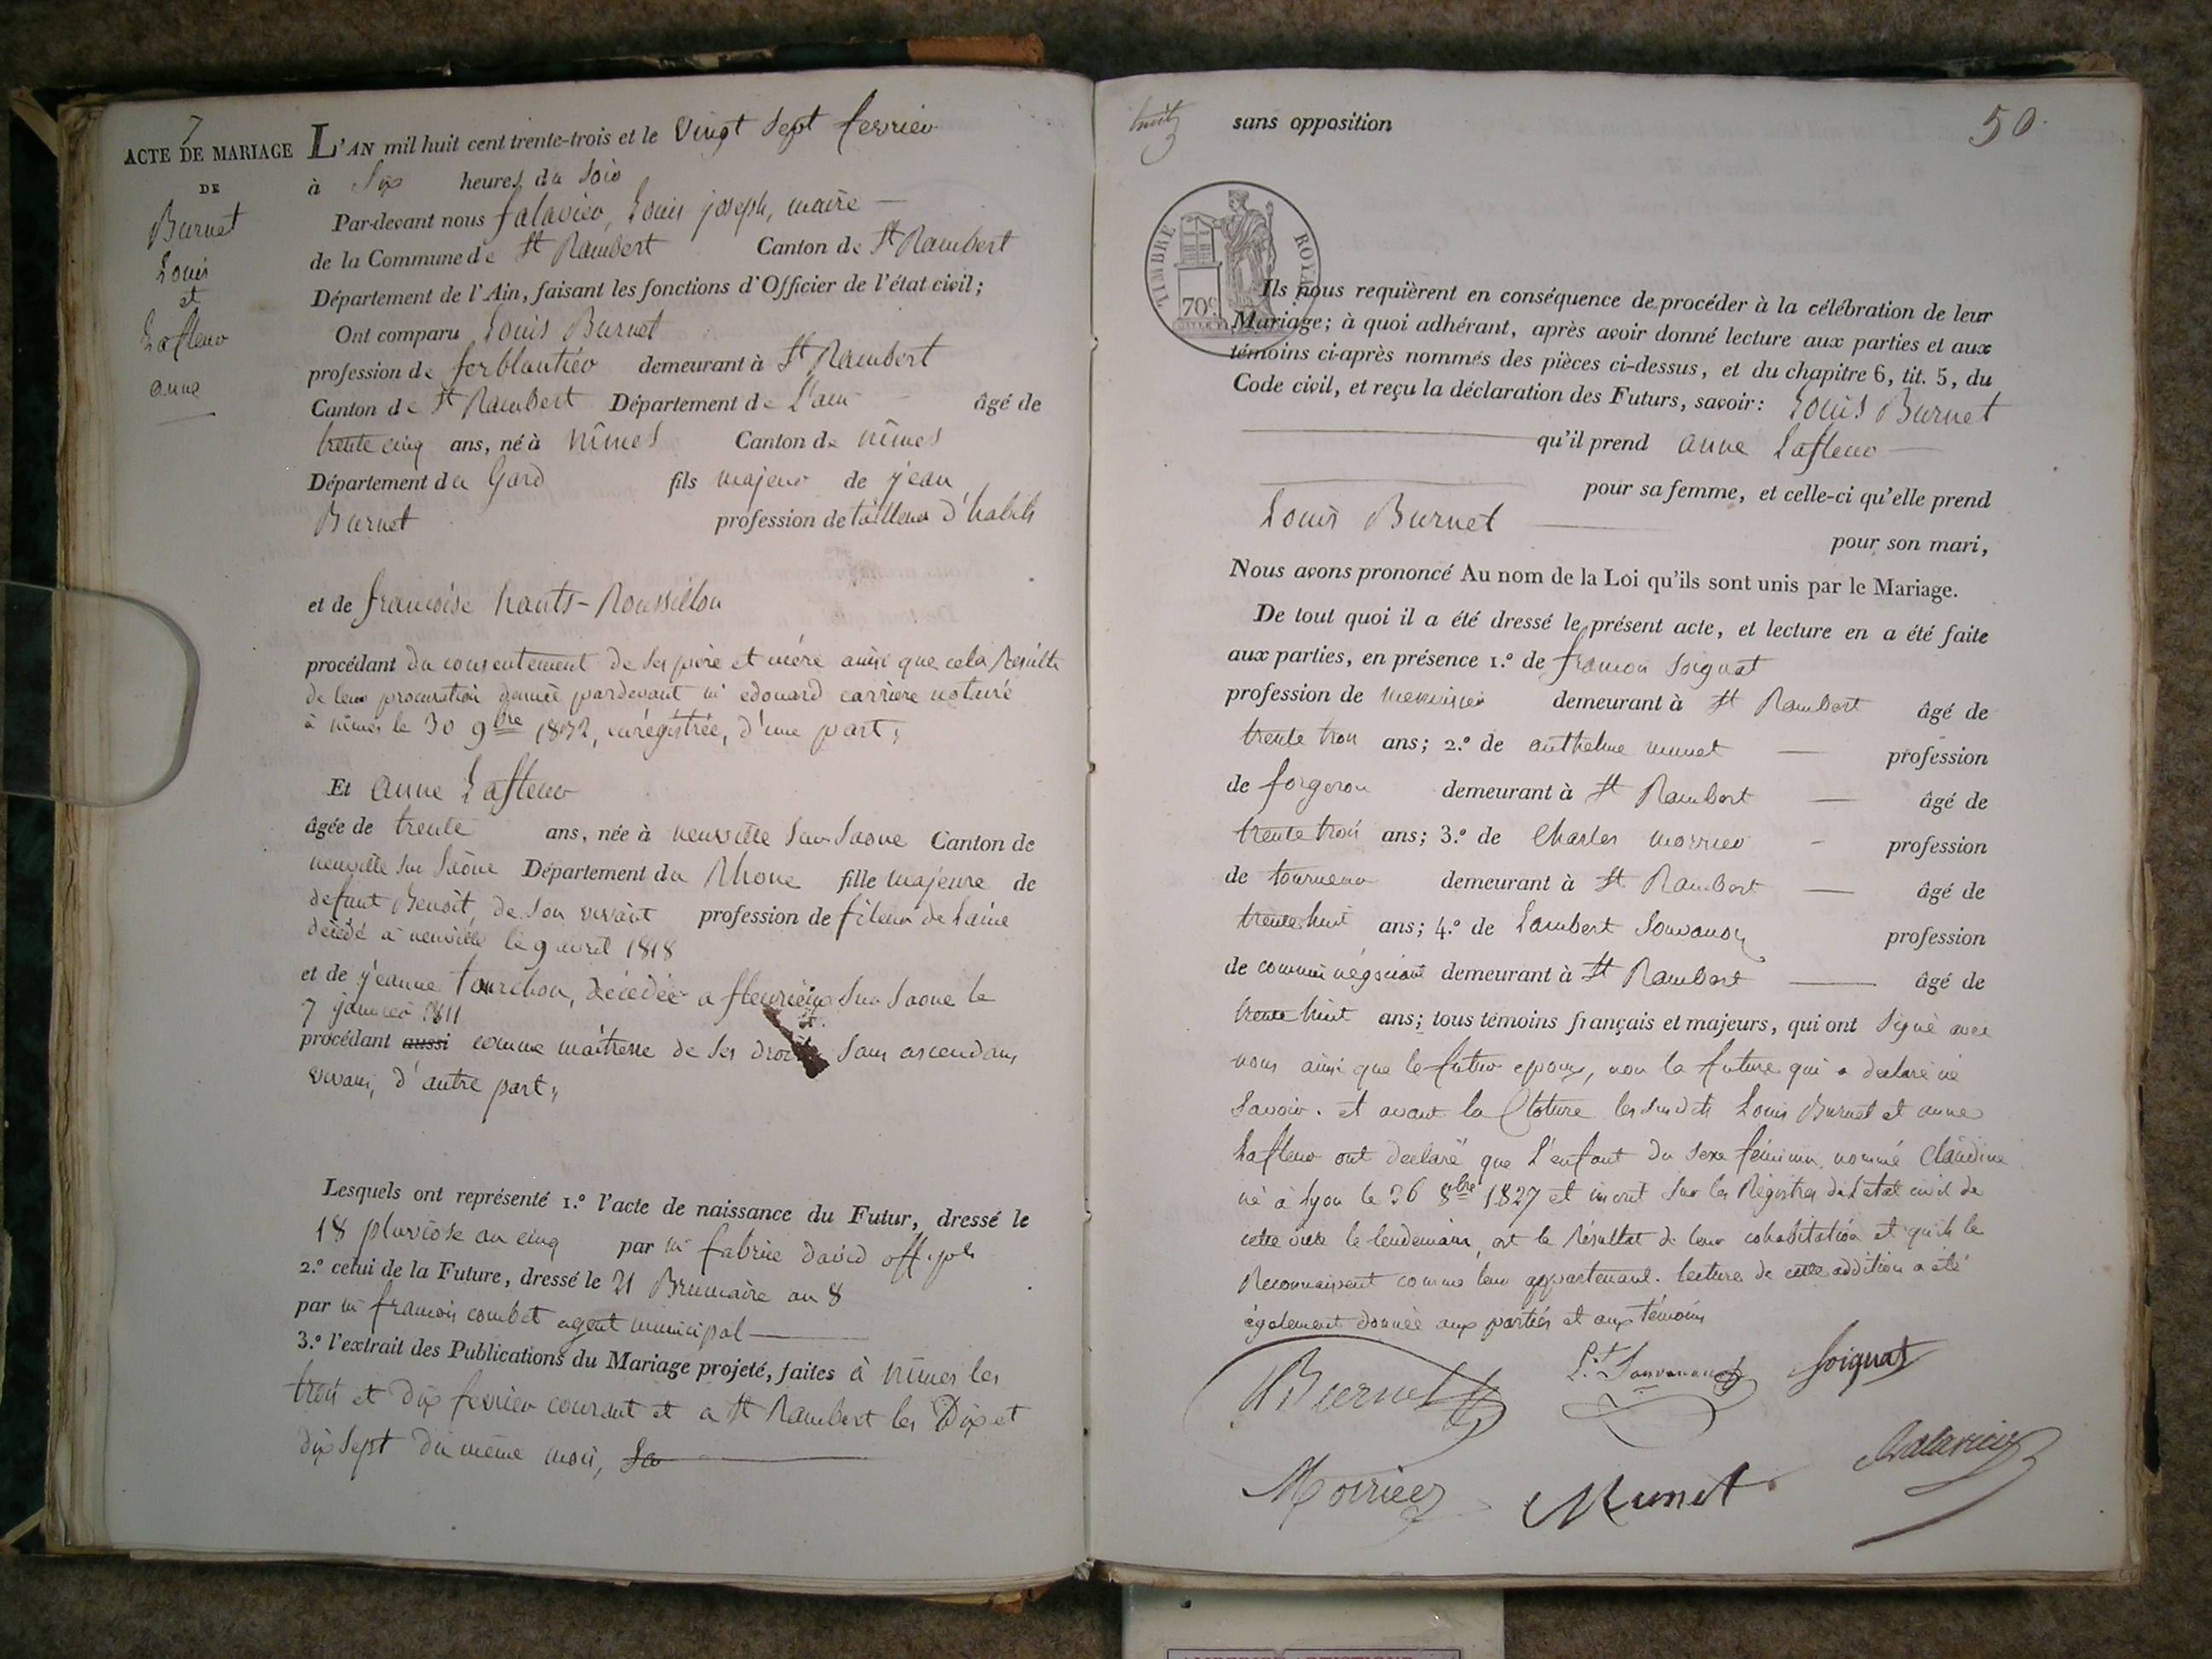 7
ACTE DE MARIAGE
DE
Burnet
Louis
et
Lafleur
anne
L'AN mil huit cent trente-trois et le vingt sept fevrier
à Six heures du soir
Par-devant nous falavier, Louis joseph, maire
de la Commune de St Rambert Canton de St Rambert
Département de l'Ain, faisant les fonctions d'Officier de l'état civil;
Ont comparu Louis Burnet
profession de ferblantier demeurant à St Rambert
Canton de St Rambert Département de L'ain âgé de
trente cinq ans, né à nîmes Canton de nîmes
Département du Gard fils majeur de jean
Burnet profession de tailleur d'habits
et de francoise hauts-Roussillon
procédant du consentement de ses père et mère ainsi que cela résulte
de leur procuration donnée pardevant me edouard carriere notaire
à nîmes le 30 9bre 1832, enrégistrée, d'une part;
Et anne Lafleur
âgée de trente ans, née à neuville sur Saone Canton de
neuville sur Saône Département du Rhone fille majeure de
defunt Benoit, de son vivant profession de fileur de Laine
décédé à neuville le 9 avril 1818
et de jeanne tourchon, décédée a fleurieux sur Saone le
7 janvier 1811
procédant aussi comme maîtresse de ses droits sans ascendans
vivans, d'autre part;
Lesquels ont représenté 1.º l'acte de naissance du Futur, dressé le
18 pluviose an cinq par mr fabrice david off. pub
2.º celui de la Future, dressé le 21 Brumaire an 8
par mr francois combet agent municipal
3.º l'extrait des Publications du Mariage projeté, faites à nîmes les
trois et dix fevrier courant et a St Rambert les Dix et
dix sept du même mois, Sa
huit
50
sans opposition
TIMBRE ROYAL
70c.
Ils nous requièrent en conséquence de procéder à la célébration de leur
Mariage; à quoi adhérant, après avoir donné lecture aux parties et aux
témoins ci-après nommés des pièces ci-dessus, et du chapitre 6, tit. 5, du
Code civil, et reçu la déclaration des Futurs, savoir: Louis Burnet
qu'il prend anne Lafleur
pour sa femme, et celle-ci qu'elle prend
Louis Burnet
pour son mari,
Nous avons prononcé Au nom de la Loi qu'ils sont unis par le Mariage.
De tout quoi il a été dressé le présent acte, et lecture en a été faite
aux parties, en présence 1.º de francois Soignat
profession de menuisier demeurant à St Rambert âgé de
trente trois ans; 2.º de anthelme munet profession
de forgeron demeurant à St Rambert âgé de
trente trois ans; 3.º de Charles moirier profession
de tourneur demeurant à St Rambert âgé de
trente huit ans; 4.º de Lambert Souvanon profession
de commis négociant demeurant à St Rambert âgé de
trente huit ans; tous témoins français et majeurs, qui ont signé avec
nous ainsi que le futur epoux, non la future qui a declaré ne
savoir. et avant la Cloture les susdits Louis Burnet et anne
Lafleur ont declaré que L'enfant du sexe féminin nommé Claudine
né à Lyon le 26 8bre 1827 et inscrit sur les Régistres de L'etat civil de
cette ville le lendemain, est le résultat de leur cohabitation et qu'ils le
Reconnaissent comme leur appartenant. lecture de cette addition a été
également donnée aux parties et aux témoins
Burnet
Lt. Souvanon
Soignat
Moirier
Munet
falavier